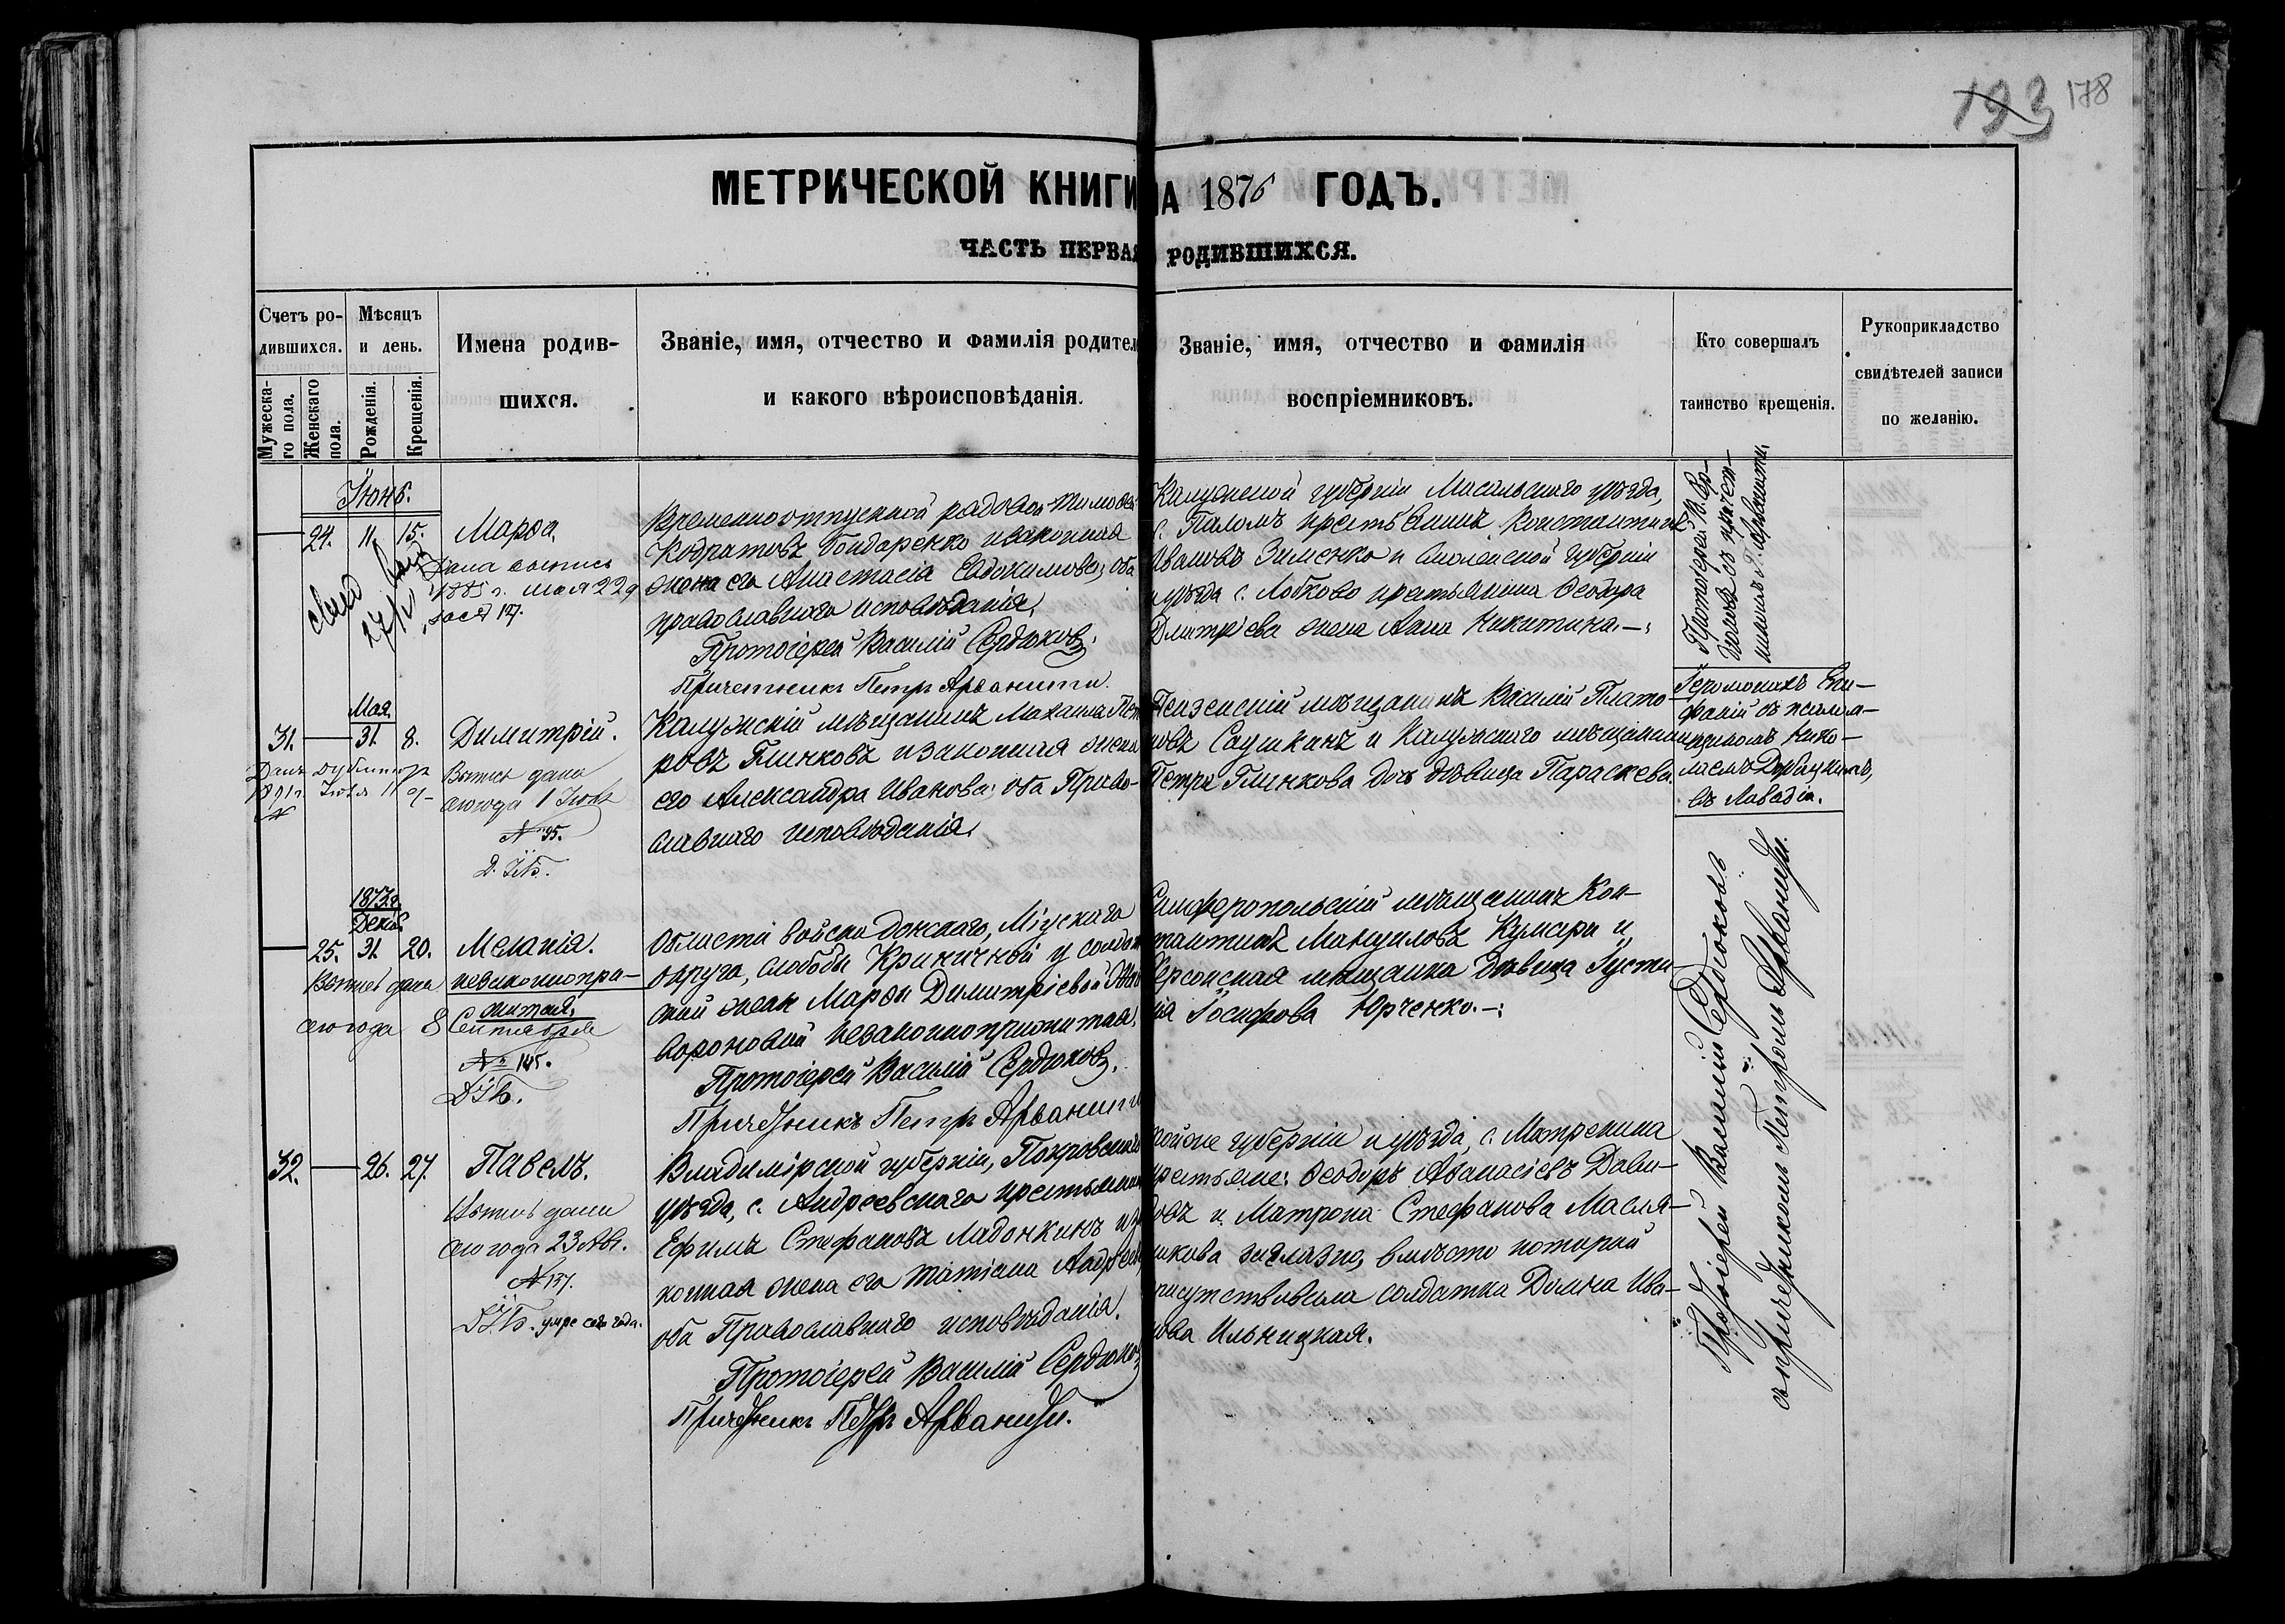 193 178
МЕТРИЧЕСКОЙ КНИГИ НА 1876 ГОДЪ.
ЧАСТЬ ПЕРВАЯ РОДИВШИХСЯ.
Счетъ ро-
дившихся.
Мужеска-
го пола.
Женскаго
пола.
Мѣсяцъ
и день.
Рожденія.
Крещенія.
Имена родив-
шихся.
Званіе, имя, отчество и фамилія родител
и какого вѣроисповѣданія.
Званіе, имя, отчество и фамилія
воспріемниковъ.
Кто совершалъ
таинство крещенія.
Рукоприкладство
свидѣтелей записи
по желанію.
Іюнь.
24. 11. 15. Марѳа.
Дана выпись
1885 г. мая 22 д
Временноотпускной рядовой Тимоѳей
Кодратовъ Бондаренко и законная
жена его Анастасія Евдокимова; оба
православнаго исповѣданія.
Протоіерей Василій Сердюковъ.
Причетникъ Петръ Арванити.
Калужской губерніи Масальскаго уѣзда,
с. Паломъ крестьянинъ Константинъ
Ивановъ Зименко и Смоленской губерніи
и уѣзда с. Лобково крестьянина Ѳеодора
Димитріева жена Анна Никитина.—
Протоіерей В. Сер-
дюковъ съ причет-
никомъ П. Арванити.
Мая
31. 31. 8. Димитрій.
Данъ дубликатъ
1891 г. Іюля 11 д.
Выпись дана
сего года 1 Іюля
№ 95.
Калужскій мѣщанинъ Михаилъ Пет
ровъ Глинковъ и законная жена
его Александра Иванова; оба Право-
славнаго исповѣданія.
Пензенскій мѣщанинъ Василій Плато-
новъ Саушкинъ и Калужскаго мѣщанина
Петра Глинкова дочь дѣвица Параскева.
Іеромонахъ Епи-
фаній съ псалом-
щикомъ Нико-
лаемъ
въ Ливадіи.
Декаб.
25. 31. 20. Меланія.
незаконнопри-
житая.
Выпись дана
сего года 8 Сентября
№ 145.
Области войска Донскаго, Міускаго
округа, слободы Криничной у солдат
ской жены Марѳы Димитріевой
вороновой незаконноприжитая.
Протоіерей Василій Сердюковъ.
Причетникъ Петръ Арванити
Симферопольскій мѣщанинъ Кон-
стантинъ Мануиловъ Кумари и
Херсонская мѣщанка дѣвица Іусти-
нія Іосифова Юрченко.—
32. 26. 27. Павелъ.
Выпись дана
сего года 23 Авг.
№ 137.
умре сего года.
Владимірской губерніи, Покровскаго
уѣзда, с. Андреевскаго крестьянинъ
Ефимъ Стефановъ Ладонкинъ и за
конная жена его Татіана Андреев
оба Православнаго исповѣданія.
Протоіерей Василій Сердюковъ
Причетникъ Петръ Арванити.
губерніи и уѣзда, с. Матренина
крестьяне: Ѳеодоръ Аѳанасіевъ Дави-
довъ и Матрона Стефанова Масля-
никова заглазно, вмѣсто которой
присутствовала солдатка Домна Ива-
нова Ильницкая.
Протоіерей Василій Сердюковъ
съ причетникомъ Петромъ Арванити.